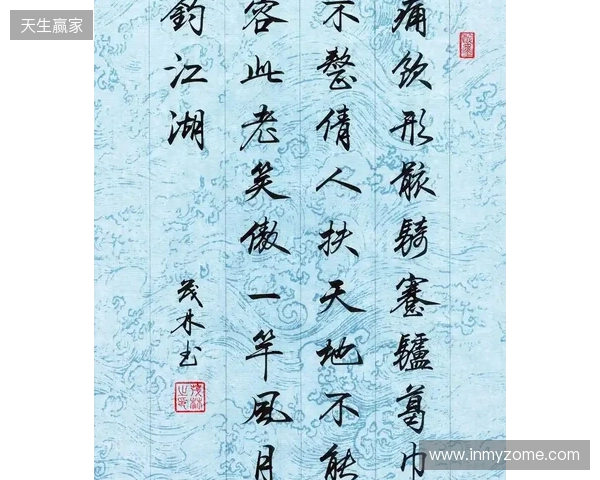 天生赢家
痛飲形骸騎蹇驢葛巾
不整倩人扶天地不能
容此老笑傲一竿風月
釣江湖
茂林书
www.inmyzome.com